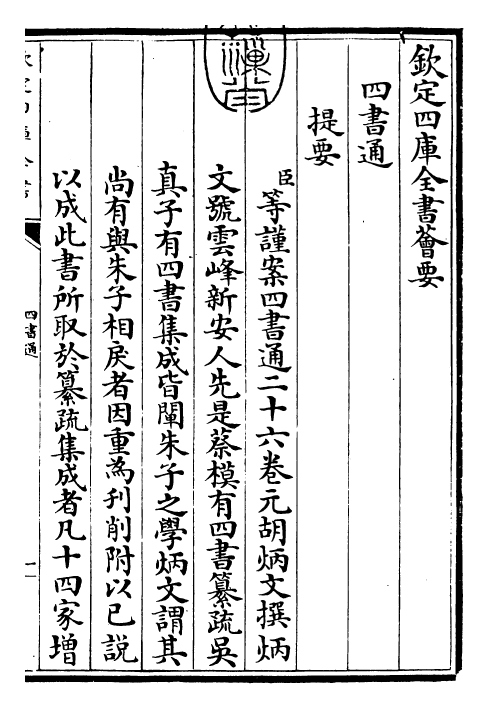 欽定四庫全書薈要
四書通
提要
臣等謹案四書通二十六卷元胡炳文撰炳
文號雲峰新安人先是蔡模有四書纂疏吳
真子有四書集成皆闡朱子之學炳文謂其
尚有與朱子相戾者因重為刋削附以已説
以成此書所取於纂疏集成者凡十四家增
四書通
一